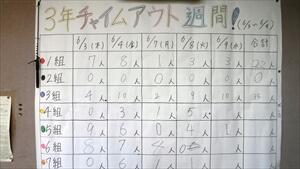 3年チャイムアウト週間! (6/3~6/9)
6/3(木) 6/4(金) 6/7(月) 6/8(火) 6/9(水) 合計
1組 7人 8人 1人 3人 3人 22人
2組 0人 0人 0人 0人 0人 0人
3組 4人 10人 2人 9人 10人 35人
4組 0人 3人 1人 5人 人 人
5組 9人 6人 0人 4人 1人 人
6組 8人 7人 4人 人 人 人
7組 0人 6人 1人 人 人 人